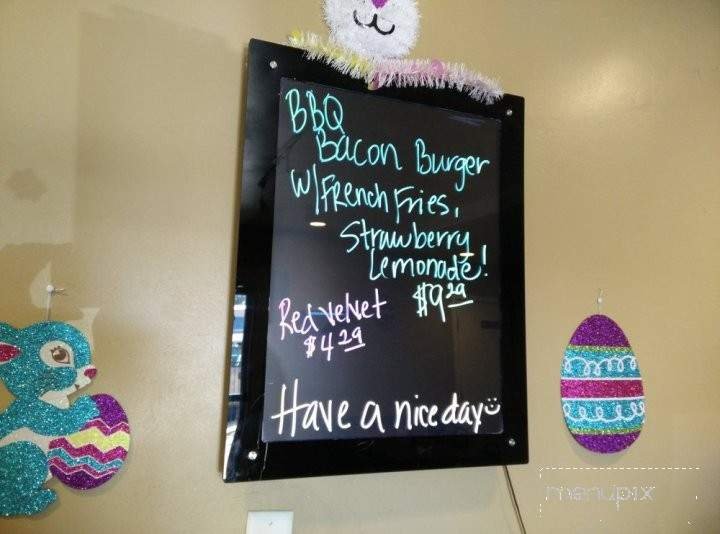 BBQ
Bacon Burger
W/French Fries,
Strawberry
Lemonade!
$9.29
Red velvet
$4.29
Have a nice day
menupix